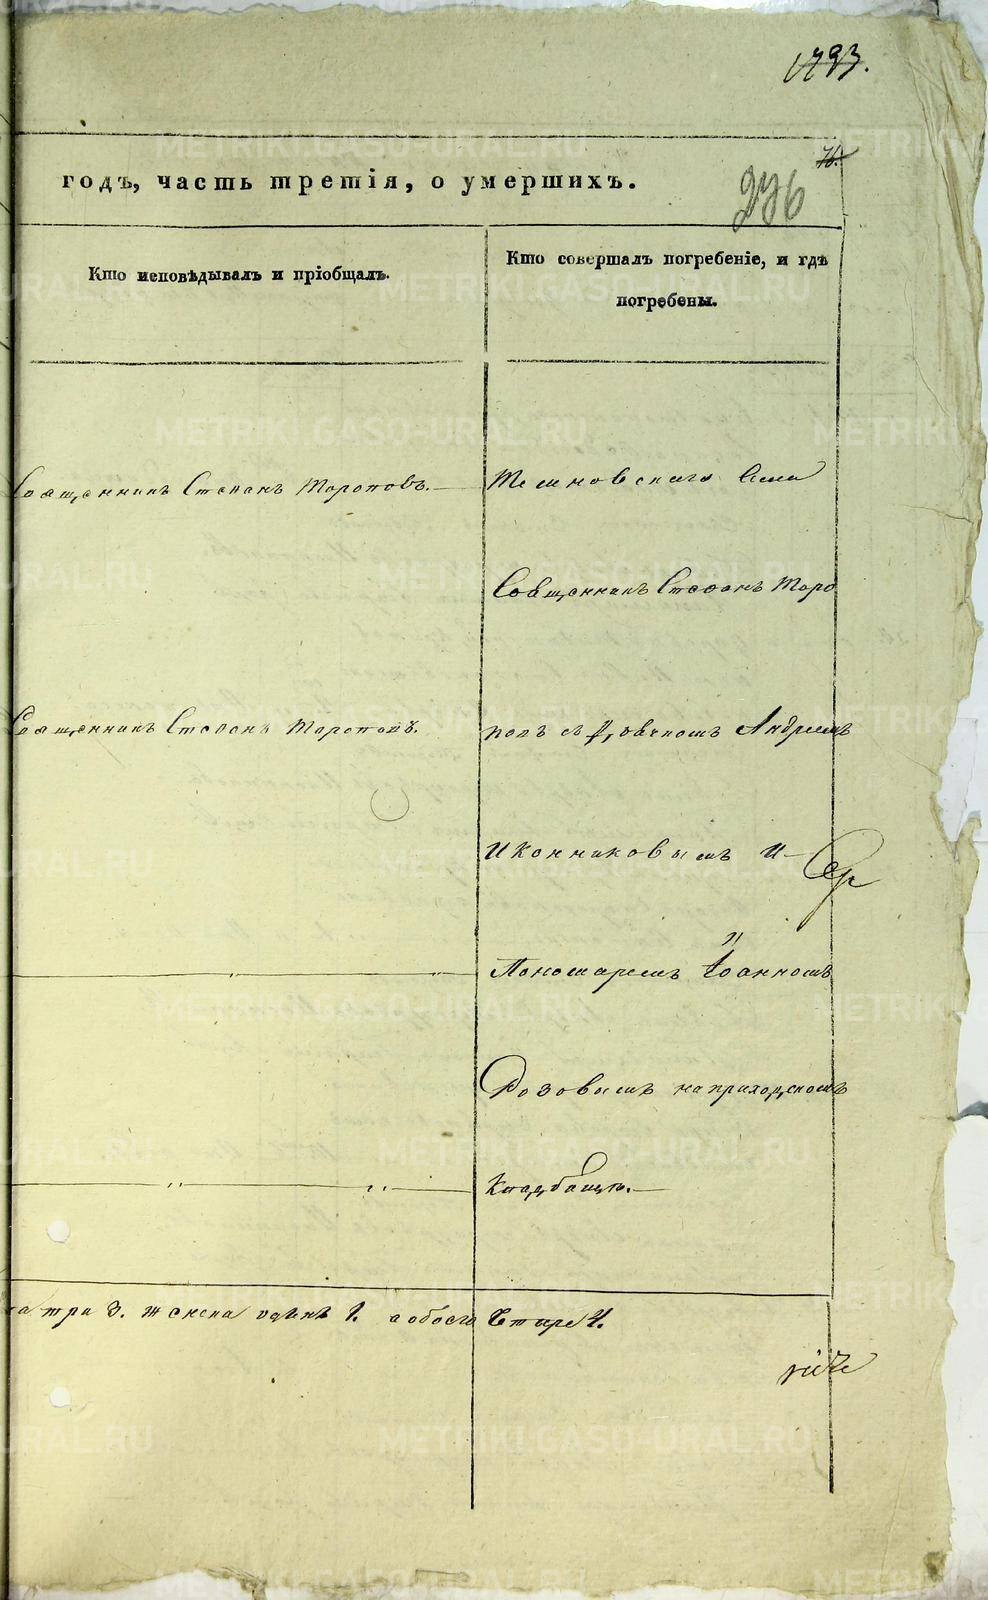 1793.
76.
годъ, часть третія, о умершихъ.
236
Кто исповѣдывалъ и пріобщалъ.
Кто совершалъ погребеніе, и гдѣ
погребены.
Священникъ Стефанъ Торопов.
Священникъ Стефанъ Торо
Священникъ Стефанъ Тороповъ.
повъ съ Дьячкомъ Андреемъ
Иконниковымъ И
Пономаремъ Іоанномъ
Розовымъ на приходскомъ
Кладбищѣ.
а три 3. женска одинъ 1. а обоего Четыре 4.
METRIKI.GASO-URAL.RU